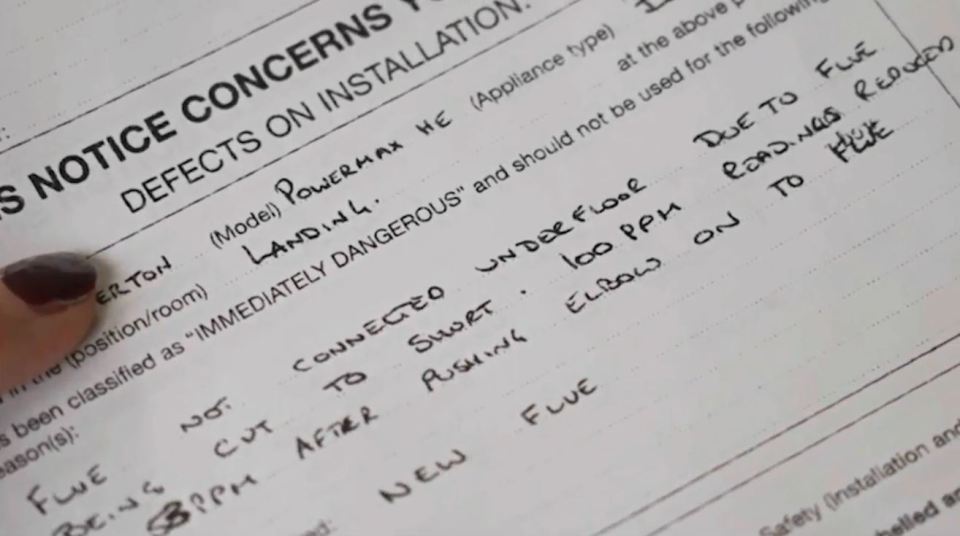 S NOTICE CONCERNS
DEFECTS ON INSTALLATION.
ERTON (Model) POWERMAX HE (Appliance type)
in the (position/room) LANDING. at the above
s been classified as "IMMEDIATELY DANGEROUS" and should not be used for the following
eason(s):
FLUE NOT CONNECTED UNDERFLOOR DUE TO FLUE
BEING CUT TO SHORT. 100 PPM READINGS REDUCED
PPM AFTER PUSHING ELBOW ON TO FLUE
NEW FLUE
Safety (Installation and